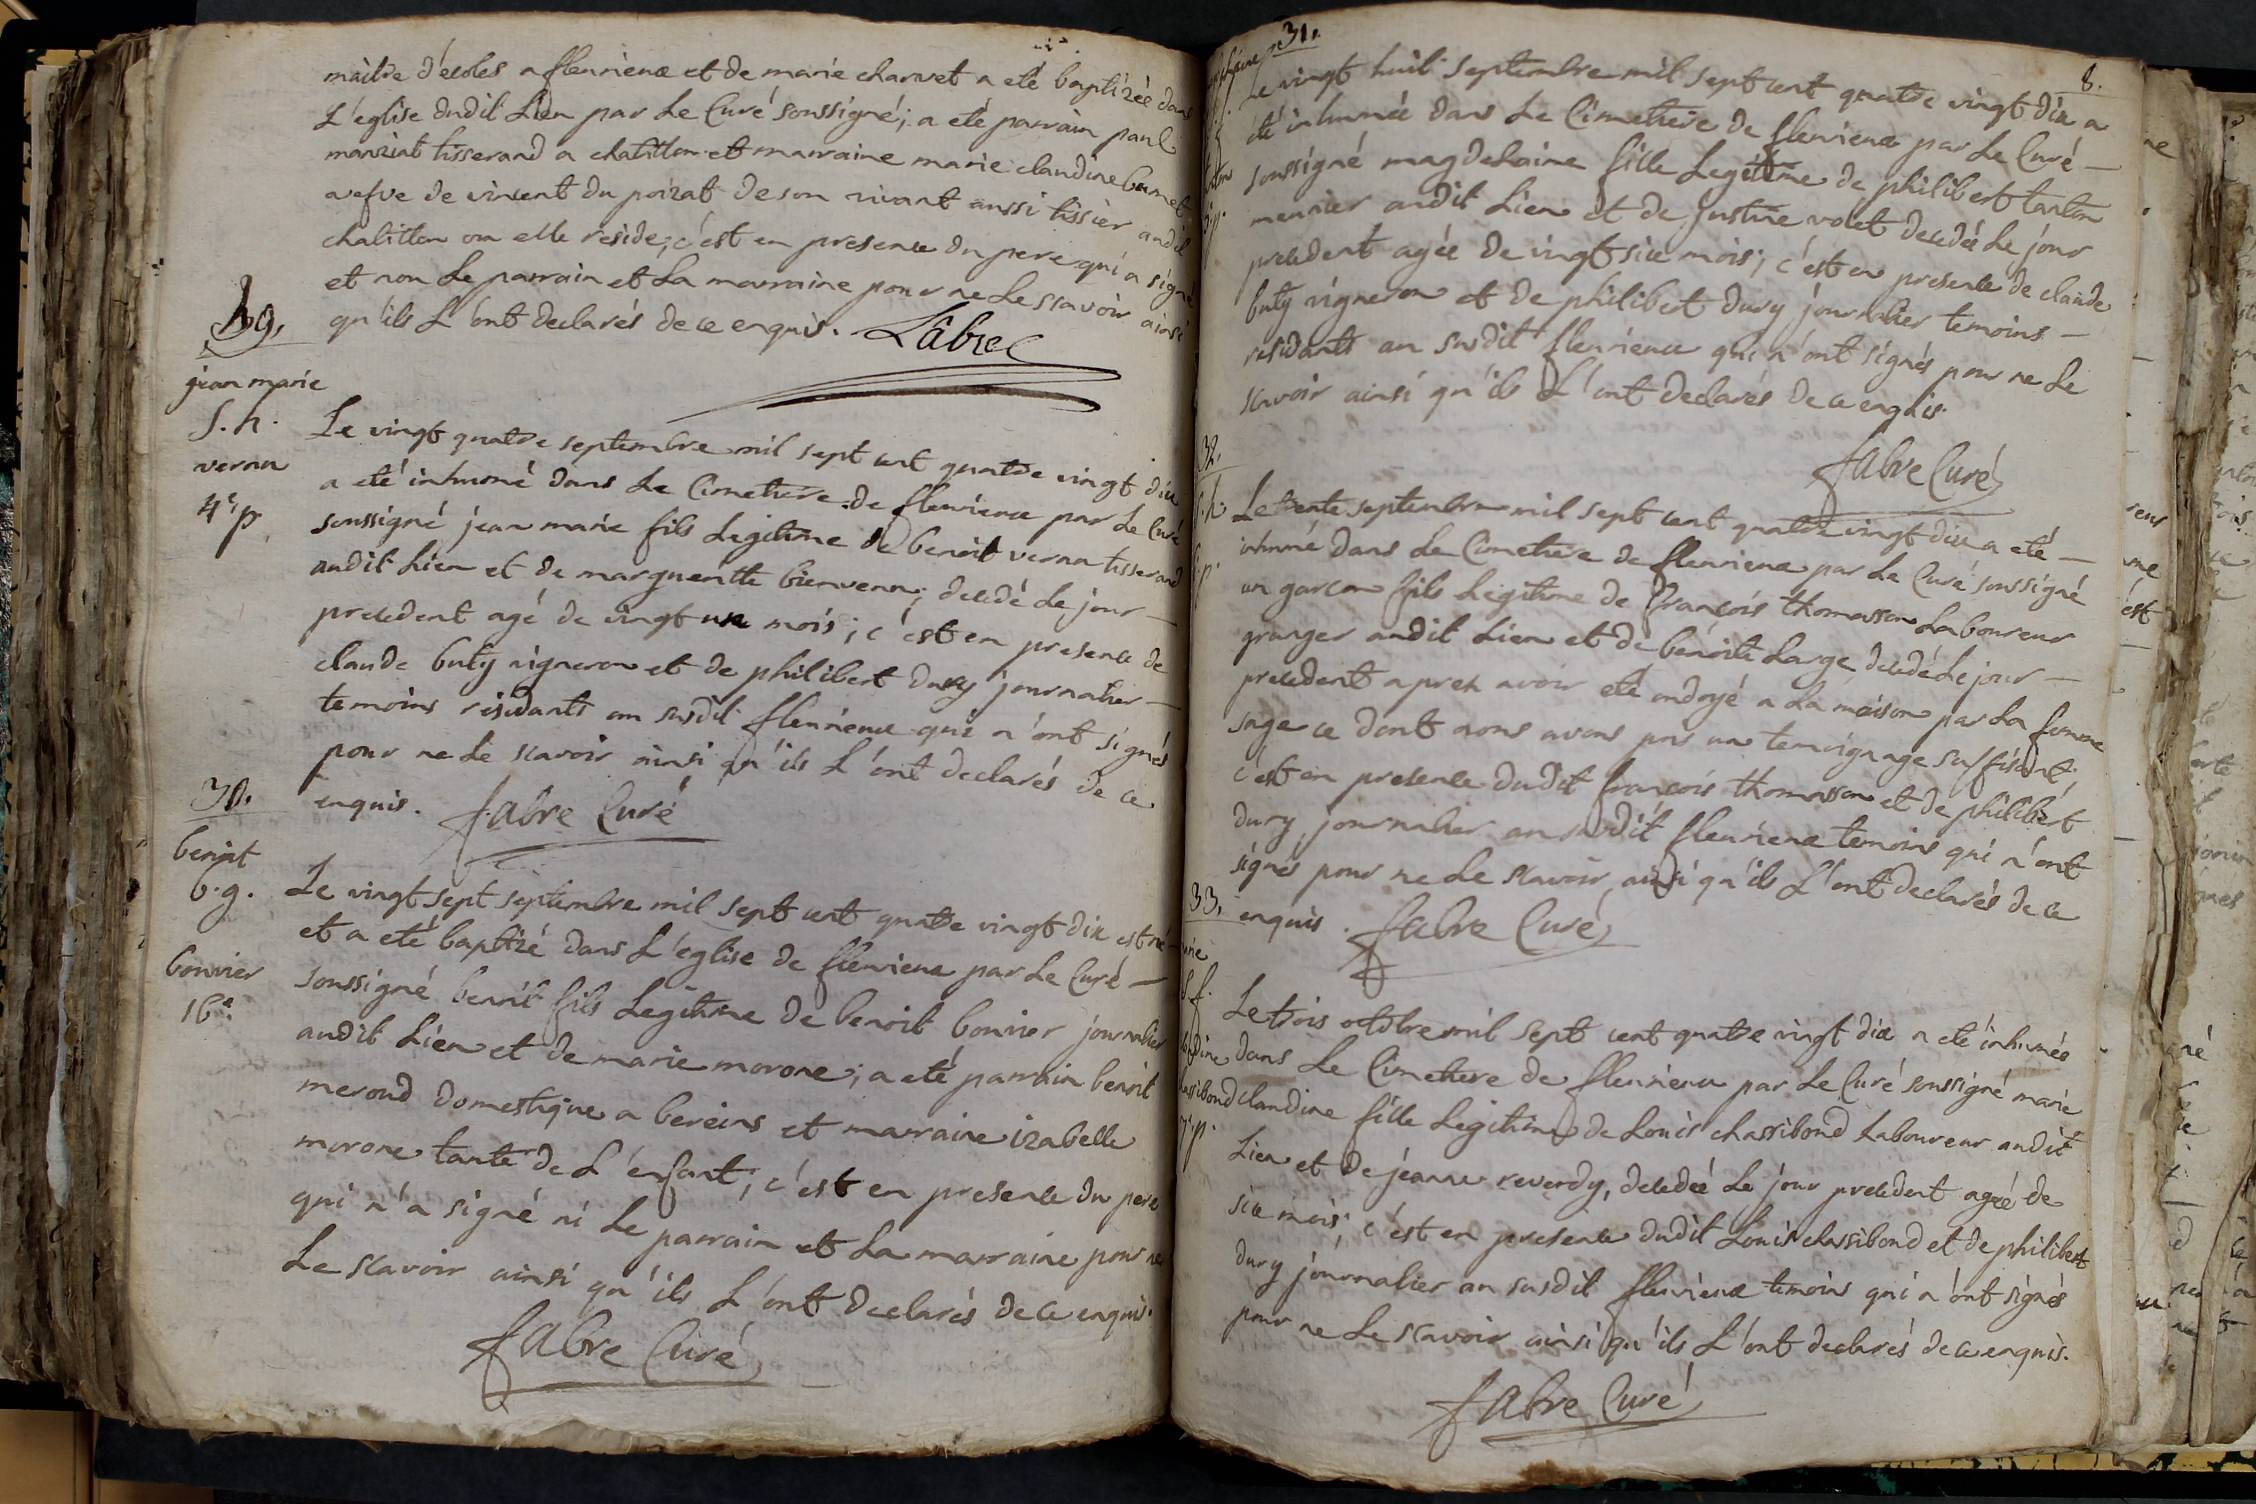 maitre d'ecoles a fleurieux et de marie charvet a eté baptizée dans
L'eglise dudit Lieu par Le Curé soussigné; a eté parrain paul
manziat tisserand a chatillon et marraine marie claudine
vefve de vincent du poizat de son vivant aussi tissier audit
chatillon ou elle reside; c'est en presence du pere qui a signé
et non Le parrain et La marraine pour ne Le scavoir ainsi
qu'ils L'ont declarés de ce enquis. Labre
29.
jean marie
S. h.
vernu
4e p.
Le vingt quatre septembre mil sept cent quatre vingt dix
a eté inhumé dans Le Cimetiere de fleurieux par Le Curé
soussigné jean marie fils Legitime de benoit vernu tisserand
audit Lieu et de margueritte bienvenu; decedé Le jour —
precedent agé de vingt un mois; c'est en presence de
claude buty vigneron et de philibert dury journalier —
temoins residants au susdit fleurieux qui n'ont signés
pour ne Le scavoir ainsi qu'ils L'ont declarés de ce
enquis. fabre Curé
30.
benoit
b. g.
bonvier
16e.
Le vingt sept septembre mil sept cent quatre vingt dix est né
et a eté baptizé dans L'eglise de fleurieux par Le Curé —
soussigné benoit fils Legitime de benoit bonvier journalier
audit Lieu et de marie morone; a eté parrain benoit
merond domestique a bereins et marraine izabelle
morone tante de L'enfant; c'est en presence du pere
qui n'a signé ni Le parrain et La marraine pour ne
Le scavoir ainsi qu'ils L'ont declarés de ce enquis.
fabre Curé
31.
8.
Le vingt huit septembre mil sept cent quatre vingt dix a
été inhumée dans Le Cimetiere de fleurieux par Le Curé —
soussigné magdelaine fille Legitime de philibert tanton
meunier audit Lieu et de justine volet decedée Le jour
precedent agée de vingt six mois; c'est en presence de claude
buty vigneron et de philibert dury journalier temoins —
residants au susdit fleurieux qui n'ont signés pour ne Le
scavoir ainsi qu'ils L'ont declarés de ce enquis.
fabre Curé
32.
Le trente septembre mil sept cent quatre vingt dix a eté —
inhumé dans Le Cimetiere de fleurieux par Le Curé soussigné
un garcon fils Legitime de françois thomasson Laboureur
granger audit Lieu et de benoite Large decedé Le jour —
precedent apres avoir eté ondoyé a La maison par La femme
sage ce dont nous avons pris un temoignage suffisant;
c'est en presence dudit françois thomasson et de philibert
dury journalier au susdit fleurieux temoins qui n'ont
signés pour ne Le scavoir ainsi qu'ils L'ont declarés de ce
enquis. fabre Curé
33.
Le trois octobre mil sept cent quatre vingt dix a eté inhumée
dans Le Cimetiere de fleurieux par Le Curé soussigné marie
claudine fille Legitime de Louis chassibond Laboureur audit
Lieu et de jeanne reverdy, decedée Le jour precedent agée de
six mois; c'est en presence dudit Louis chassibond et de philibert
dury journalier au susdit fleurieux temoins qui n'ont signés
pour ne Le scavoir ainsi qu'ils L'ont declarés de ce enquis.
fabre Curé